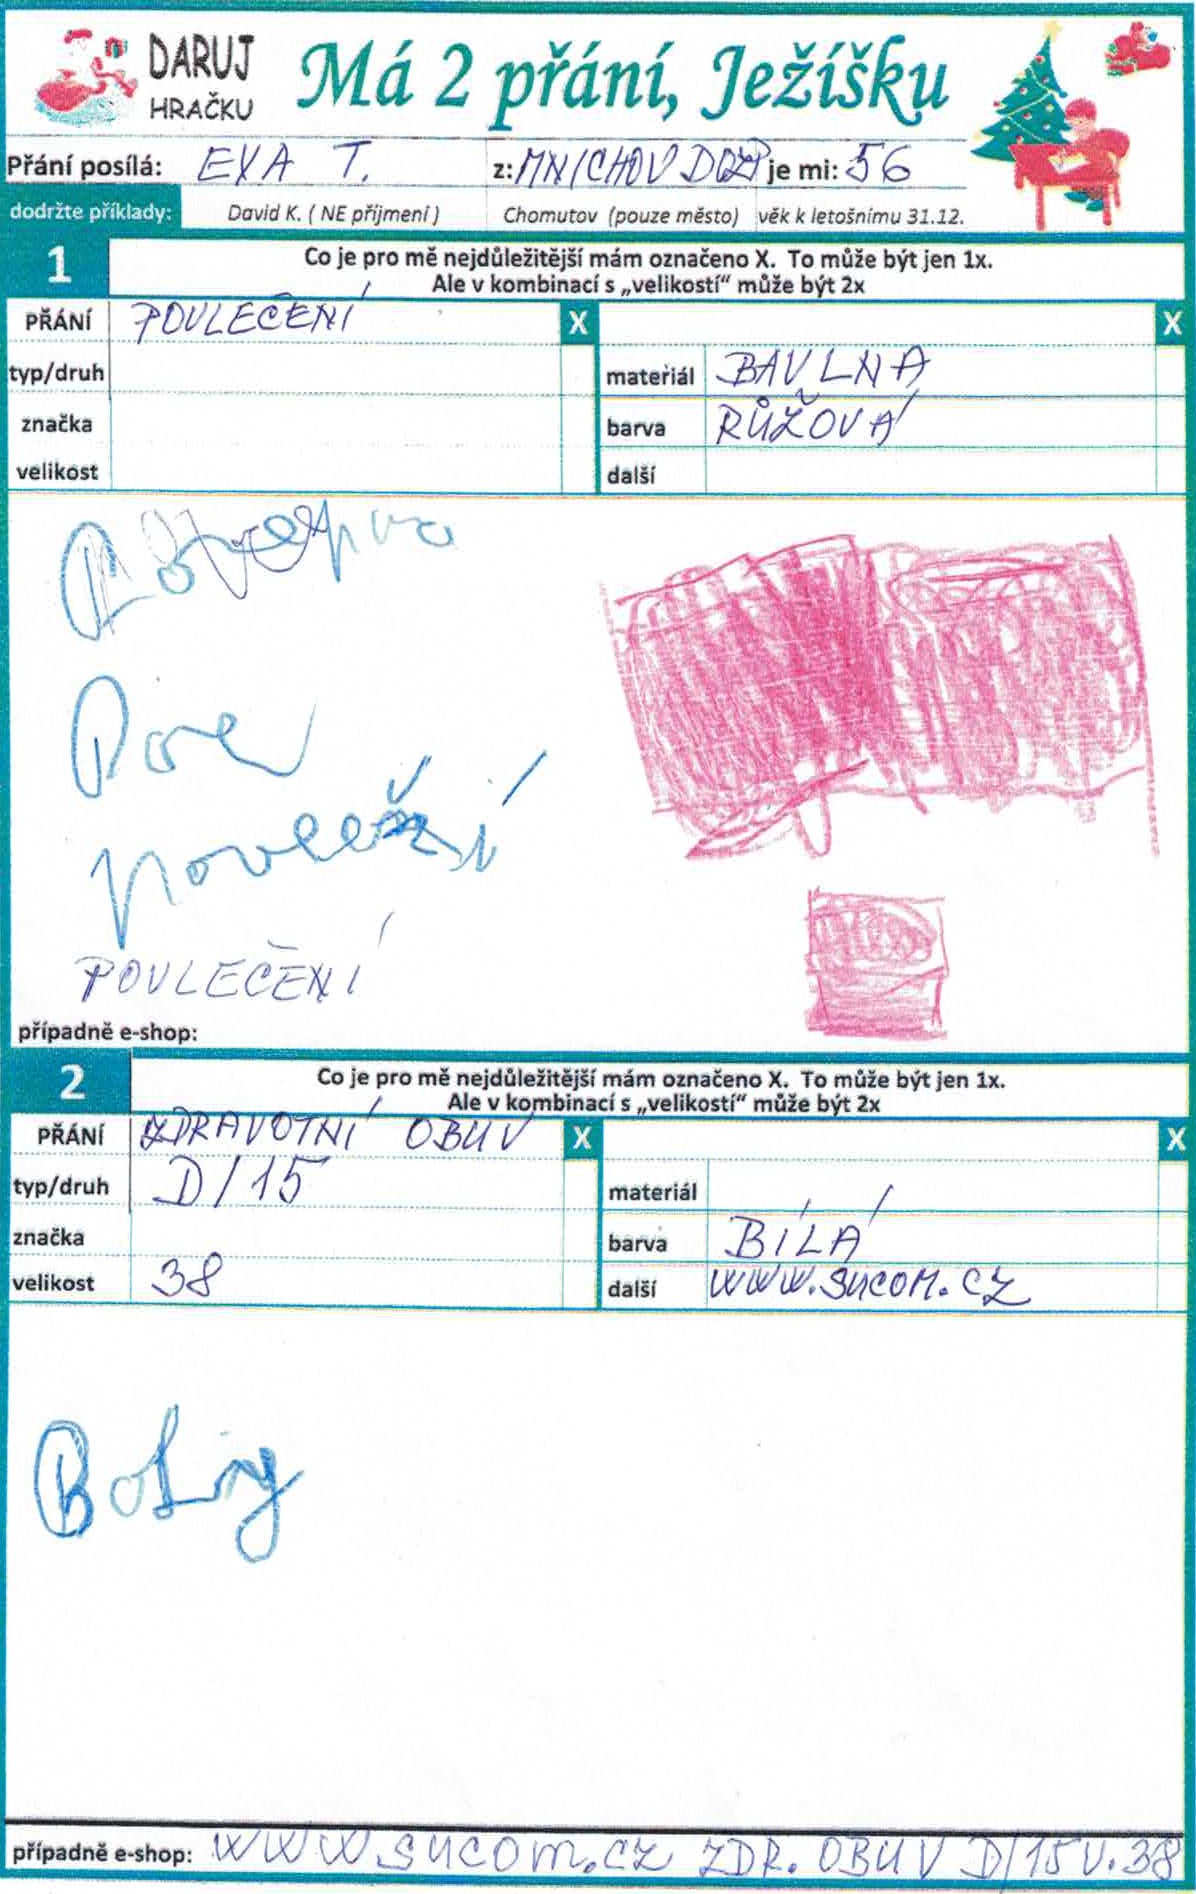 DARUJ
HRAČKU
Má 2 přání, Ježíšku
Přání posílá: EVA T. z: MNICHOV DOZP je mi: 56
dodržte příklady: David K. ( NE příjmení ) Chomutov (pouze město) věk k letošnímu 31.12.
1 Co je pro mě nejdůležitější mám označeno X. To může být jen 1x.
Ale v kombinací s „velikostí“ může být 2x
PŘÁNÍ POVLEČENÍ X X
typ/druh materiál BAVLNA
značka barva RŮŽOVÁ
velikost další
POVLEČENÍ
případně e-shop:
2 Co je pro mě nejdůležitější mám označeno X. To může být jen 1x.
Ale v kombinací s „velikostí“ může být 2x
PŘÁNÍ ZDRAVOTNÍ OBUV X X
typ/druh D/15 materiál
značka barva BÍLÁ
velikost 38 další WWW.SUCOM.CZ
případně e-shop: WWW.SUCOM.CZ ZDR. OBUV D/15 V.38